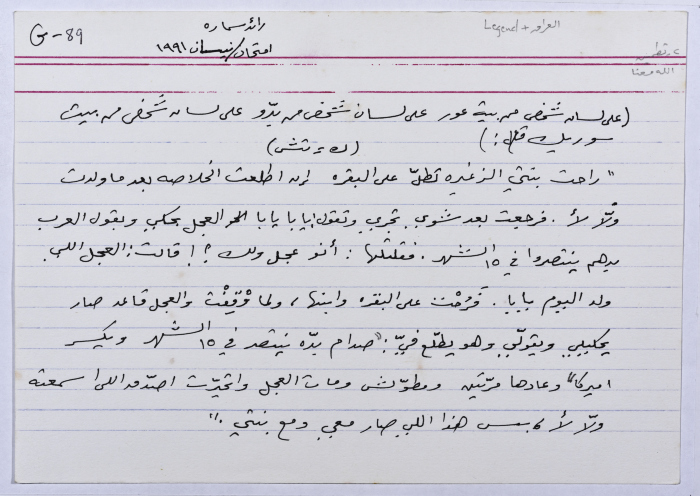 G-89
رائد سماره
امتحان/نيسان ١٩٩١
Legend + العراق
الله معنا
(على لسان شَخص من بيت عور على لسان شَخص من بدّو على لسان شَخص من بيت
سوريك قال:) (ك ء تش)
"راحت بنتي الزغيره تطلّ على البقره إن اطلعت الخلاصه بعد ما ولدت
ولّا لأ. فرجعت بعد شوي تجري وتقول يابا يابا الحق العجل بحكي وبقول العرب
بدهم ينتصروا في ١٥ الشهر. فقلتلها: أنو عجل ولك؟! قالت: العجل اللي
ولد اليوم يابا. فَرُحْت على البقره وابنها، ولما وْقِفْت والعجل قاعد صار
يحكيلي وبقولّي وهو يطلّع فيّ: "صدام بدّه ينتصر في ١٥ الشهر ويكسر
اميركا" وعادها مرّتين ومطوّلش ومات العجل واتحيّرت اصدّق اللي اسمعته
ولّا لأ بس هذا اللي صار معي ومع بنتي."